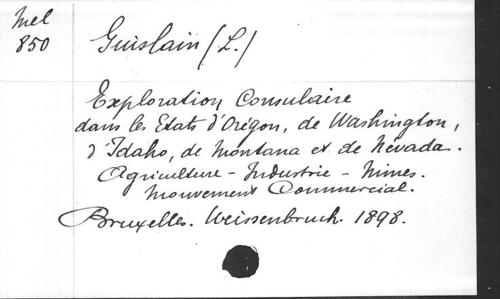 Mel
850
Guislain (L.)
Exploration Consulaire
dans les Etats d'Orégon, de Washington,
d'Idaho, de Montana et de Névada.
Agriculture - Industrie - Mines.
Mouvement Commercial.
Bruxelles. Weissenbruch. 1898.